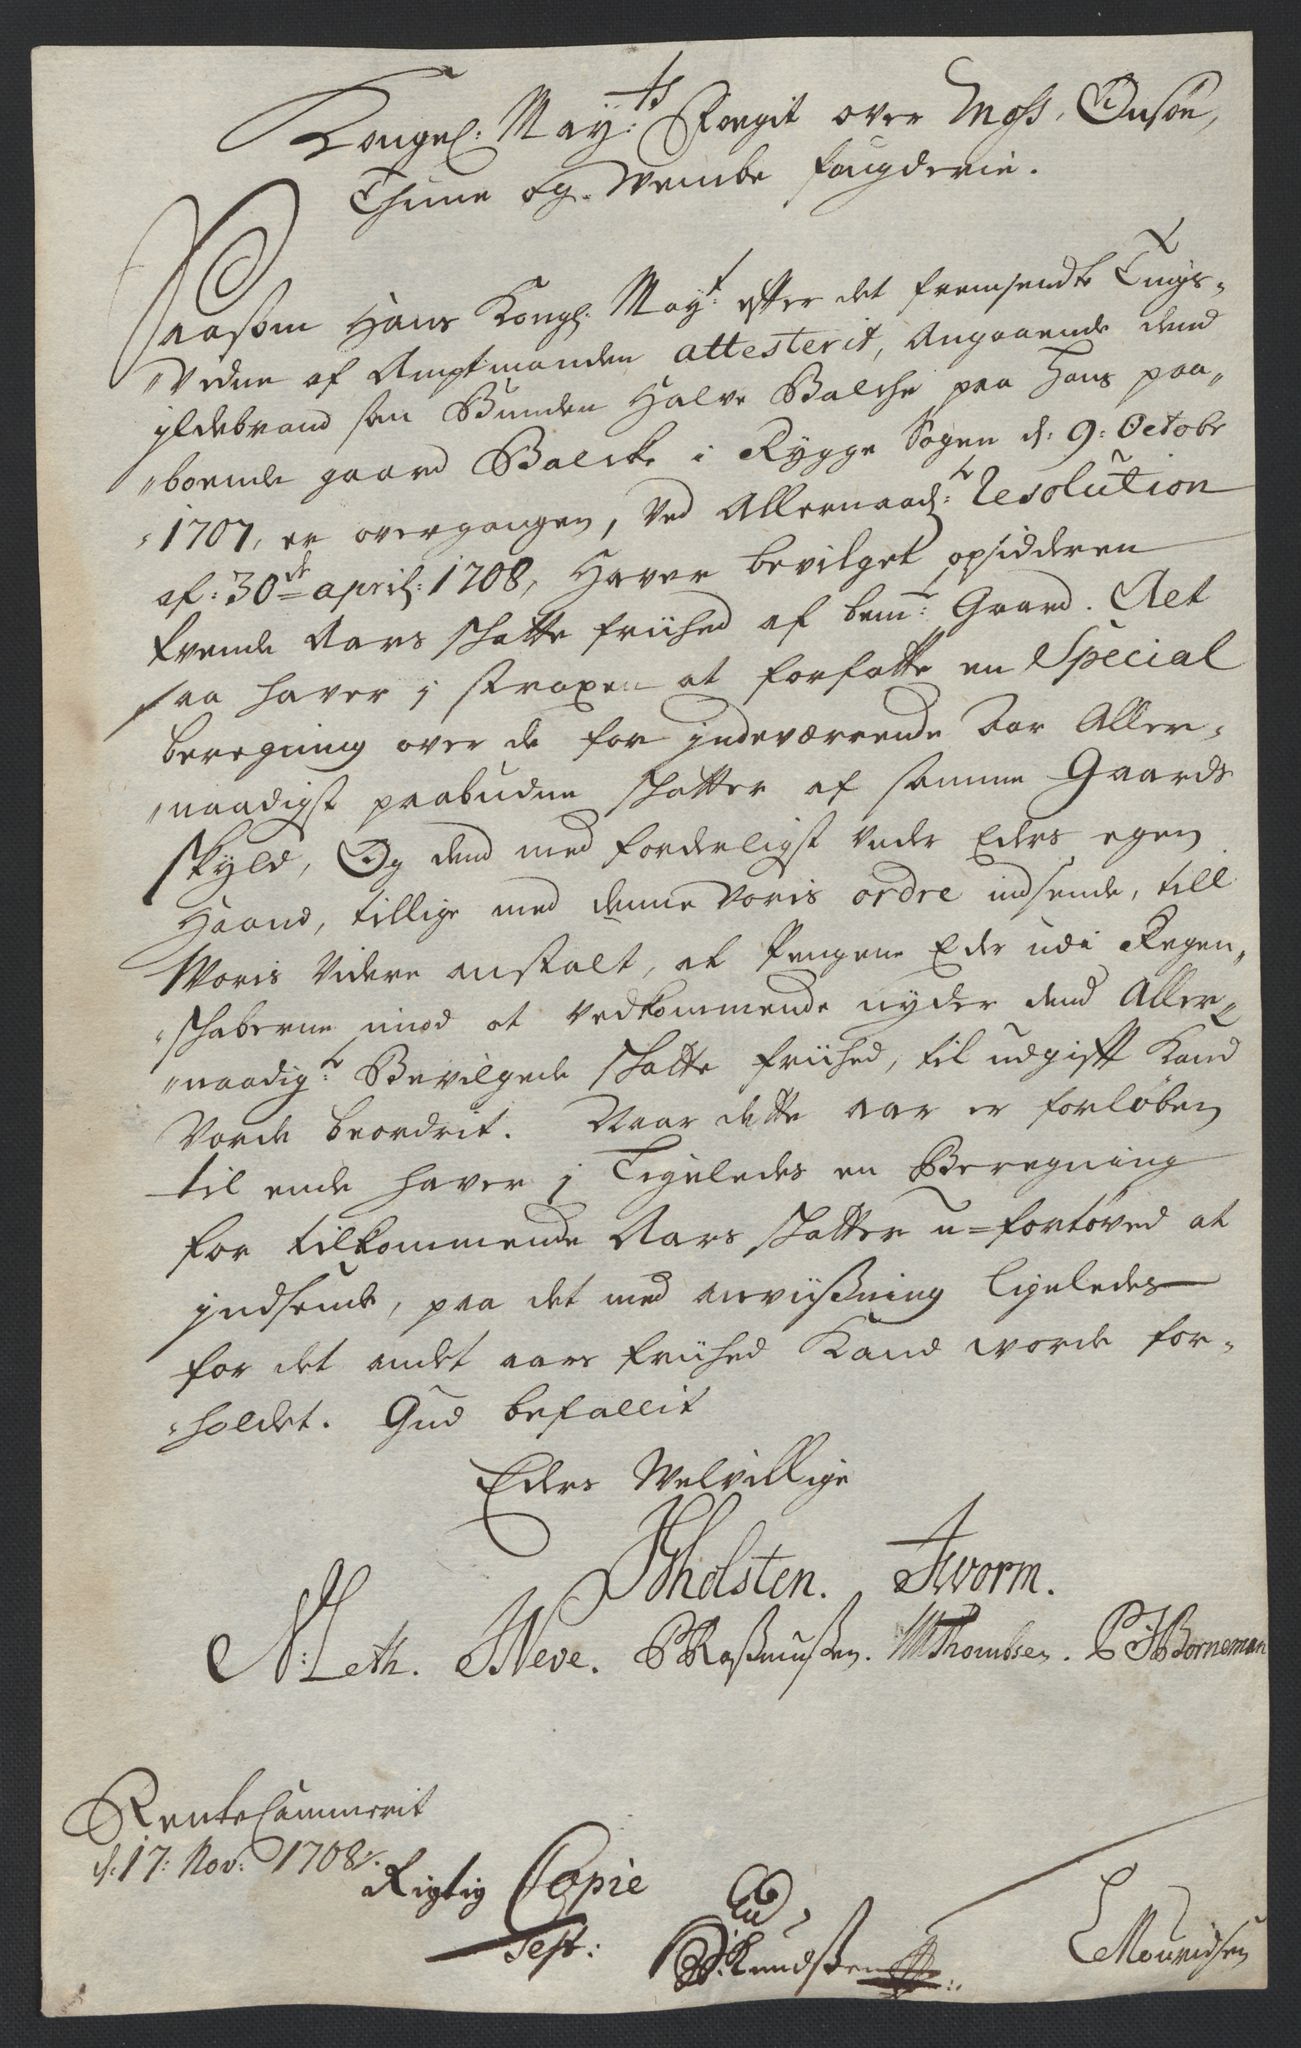 Kongel: May:ts Foogit over Moss, Onsöe,
Thune og Wembe fougderie.
Saasom Hans Kongl: May:t efter det fremsendte Tings-
Vidne af Amptmanden attesterit, Angaaende dend
jldebrand som Bunden Halvor Balche paa Hans paa-
boende gaard Balcke i Rygge Sogen d: 9: Octobr
1707, er overgangen, Ved Allernaadl:r Resolution
af: 30de april: 1708, Haver bevilget opsidderen
tvende Aars skatte friihed af bem:te Gaard. Aet
saa haver j straxen at forfatte en Special
beregning over de for jndeværende Aar Aller-
naadigst paabudne skatter af samme Gaards
skyld, Og dend med forderligst under Eders egen
Haand, tillige med denne Voris ordre indsende, till
Woris Videre anstalt, at Pengene Eder udi Regen-
skaberne imod at vedkommende nyder dend Aller-
naadig:te Bevilgede skatte friihed, til udgift Kand
Vorde beordrit. Naar dette aar er forløben
til ende haver j Ligeledes en Beregning
for tilkommende Aars skatter u-fortöved at
jndsende, paa det med anviißning ligeledes
for det andet aars friihed Kand worde for-
holdet. Gud befallit
Eders Welvillige
JGholsten. FWorm.
N: Leth. JNeve. PRaßmußen. MThombsen. C JBorneman
RenteCammerit
d: 17: Nov: 1708.
Rigtig Copie
Test:
Knudßen
CMouridsen